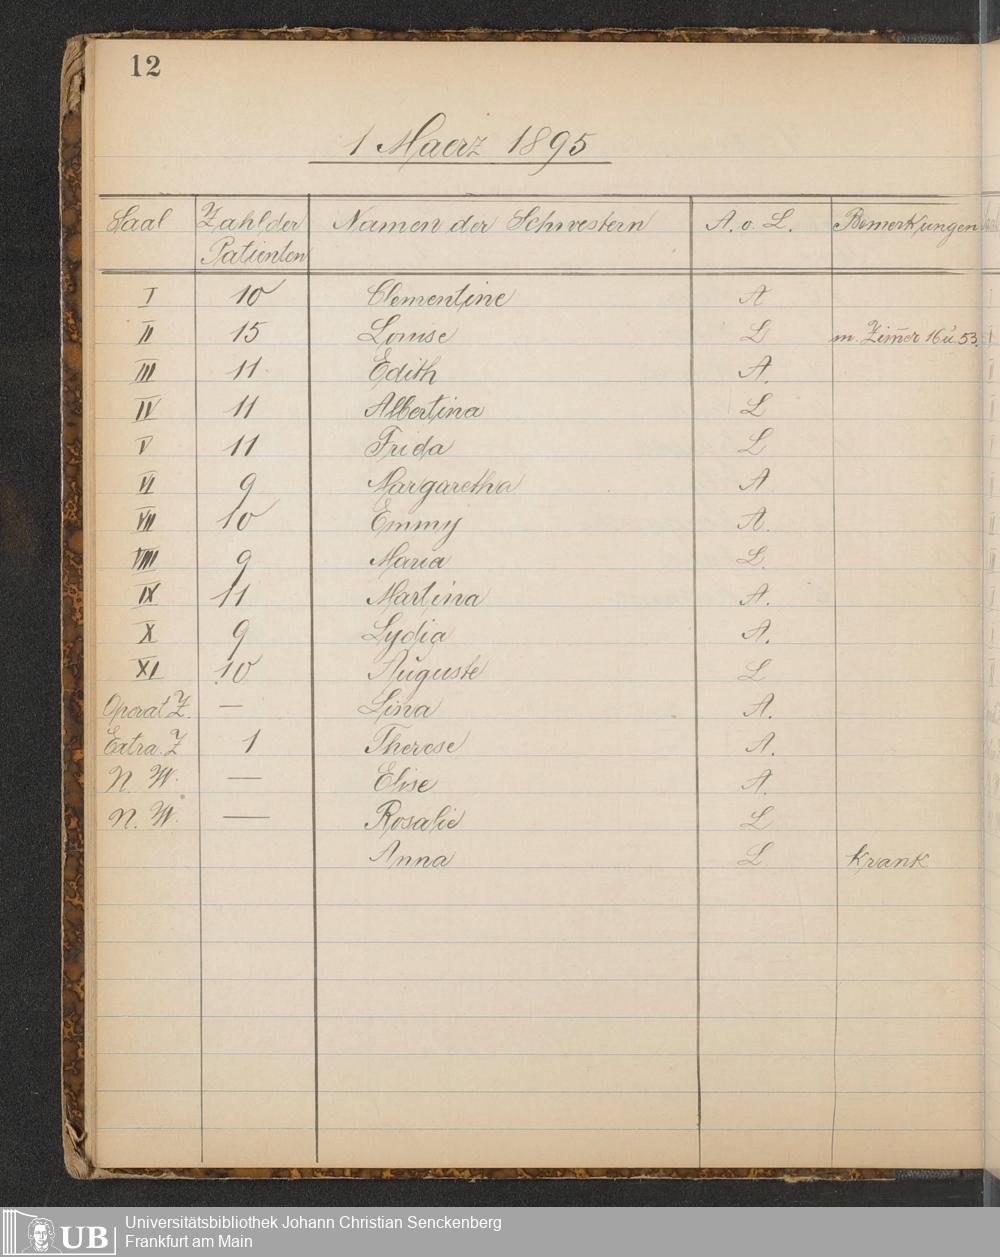 12
1 Maerz 1895
Saal Zahl der Patienten Namen der Schwestern A. o. L. Bemerkungen
I 10 Clementine A
II 15 Louise L m. Zim̄er 16 u. 53.
III 11 Edith A.
IV 11 Albertina L
V 11 Frida L
VI 9 Margaretha A
VII 10 Emmy A.
VIII 9 Maria L.
IX 11 Martina A.
X 9 Lydia A.
XI 10 Auguste L
Operat Z. — Lina A.
Extra. Z 1 Therese A.
N. W. — Elise A.
N. W. — Rosalie L
Anna L Krank
UB
Universitätsbibliothek Johann Christian Senckenberg
Frankfurt am Main